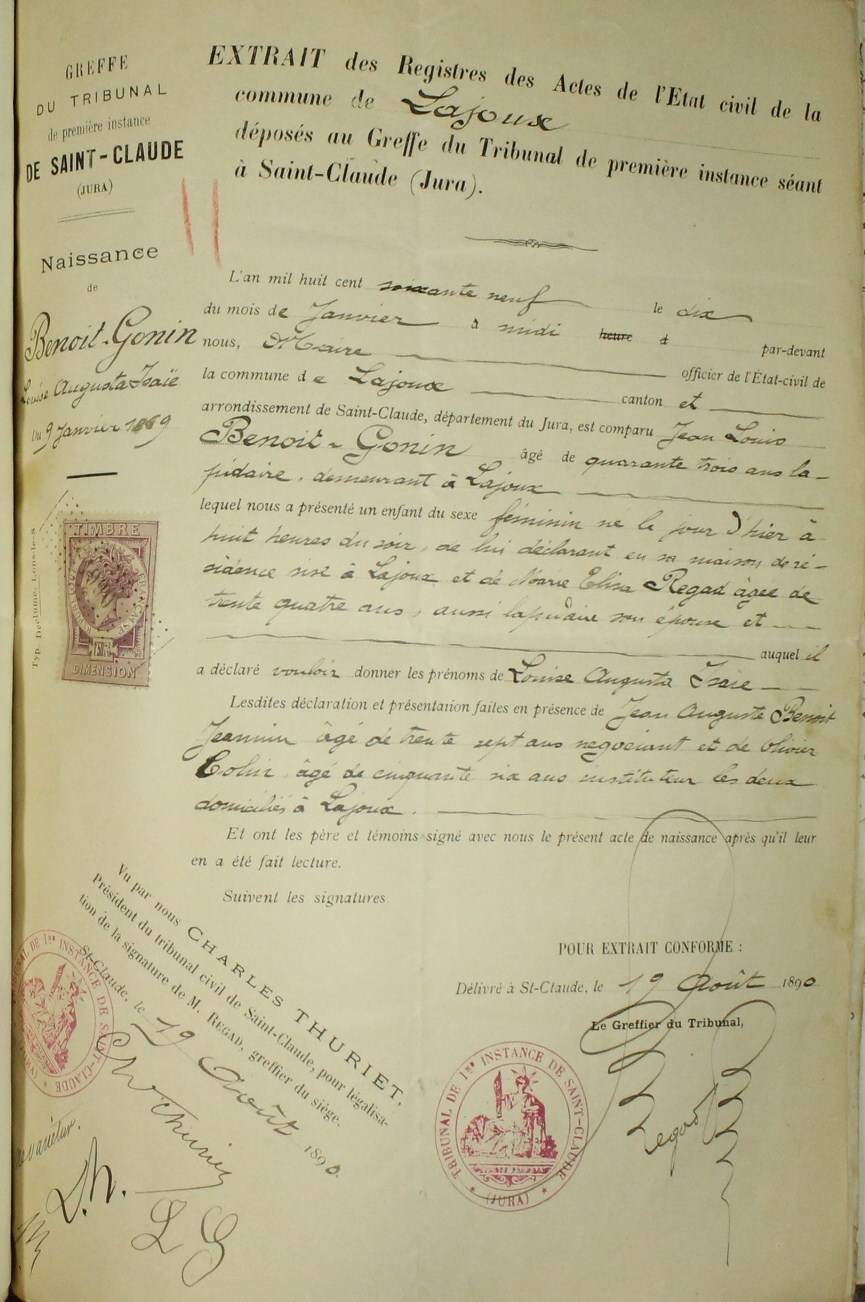 GREFFE
DU TRIBUNAL
de première instance
DE SAINT-CLAUDE
(JURA)
Naissance
de
Benoit-Gonin
Louise Augusta Isaïe
Du 9 Janvier 1869
TIMBRE
DIMENSION
EXTRAIT des Registres des Actes de l'Etat civil de la
commune de Lajoux
déposés au Greffe du Tribunal de première instance séant
à Saint-Claude (Jura).
L'an mil huit cent soixante neuf le dix
du mois de Janvier à midi heure d par-devant
nous, Maire officier de l'État-civil de
la commune de Lajoux canton et
arrondissement de Saint-Claude, département du Jura, est comparu Jean Louis
Benoit-Gonin âgé de quarante trois ans la-
pidaire, demeurant à Lajoux
lequel nous a présenté un enfant du sexe féminin né le jour d'hier à
huit heures du soir, de lui déclarant en sa maison de ré-
sidence sise à Lajoux et de Marie Elisa Regad âgée de
trente quatre ans, aussi lapidaire son épouse et
auquel il
a déclaré vouloir donner les prénoms de Louise Augusta Isaïe
Lesdites déclaration et présentation faites en présence de Jean Auguste Benoit
Jeannin âgé de trente sept ans négociant et de Olivier
Colin âgé de cinquante six ans instituteur les deux
domiciliés à Lajoux.
Et ont les père et témoins signé avec nous le présent acte de naissance après qu'il leur
en a été fait lecture.
Suivent les signatures
POUR EXTRAIT CONFORME :
Délivré à St-Claude, le 19 Août 1890
Le Greffier du Tribunal,
Regad
TRIBUNAL DE 1re INSTANCE DE SAINT-CLAUDE
(JURA)
Vu par nous CHARLES THURIET,
Président du tribunal civil de Saint-Claude, pour légalisa-
tion de la signature de M. REGAD, greffier du siège.
St-Claude, le 19 Août 1890.
Ch Thuriet
TRIBUNAL DE 1re INSTANCE DE SAINT-CLAUDE
(JURA)